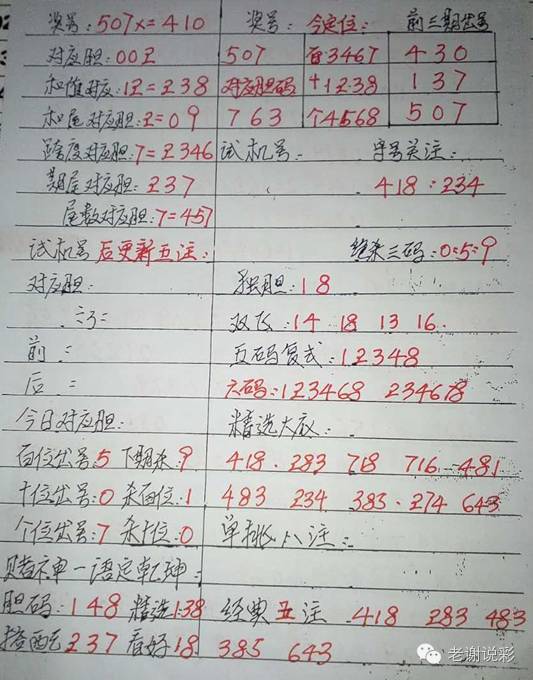 奖号:507x=410 奖号: 今定位: 前三期出号
对应胆:00Z 507 百3467 430
和值对应:12=238 对应胆码 十1238 137
和尾对应胆:2=09 763 个4568 507
跨度对应胆:7=2346 试机号: 字号关注:
期尾对应胆:237 418:234
尾数对应胆:7=457
试机号后更新五注: 绝杀三码:0:5:9
对应胆: 独胆:18
双飞:14 18 13 16
前 = 五码复式:12348
后 = 六码:123468 234678
今日对应胆: 精选大底:
百位出号:5 下期杀:9 418. 283 718 716 481
十位出号:0 杀百位:1 483 234 383. 274 643
个位出号:7 杀十位:0 单挑八注:
赌神一语定乾坤:
胆码:148 精选138 经典五注 418 283 483
搭配237 看好18 385 643
老谢说彩